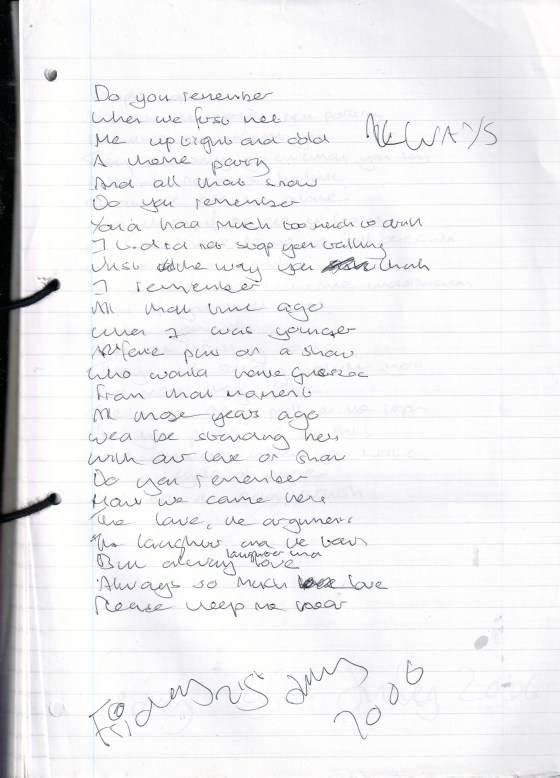 Do you remember
When we first met
Me uptight and cold
ALWAYS
A home party
And all that snow
Do you remember
You'd had much too much to drink
I did not stop you talking
Just the way you
I remember
All that time ago
When I was younger
put on a show
Who would have guessed
From that moment
All those years ago
We'd be standing here
With our love on show
Do you remember
How we came here
The love, the arguments
The laughter and the tears
laughter and
But always love
Always so much love
Please keep me near
Friday 25 
2006